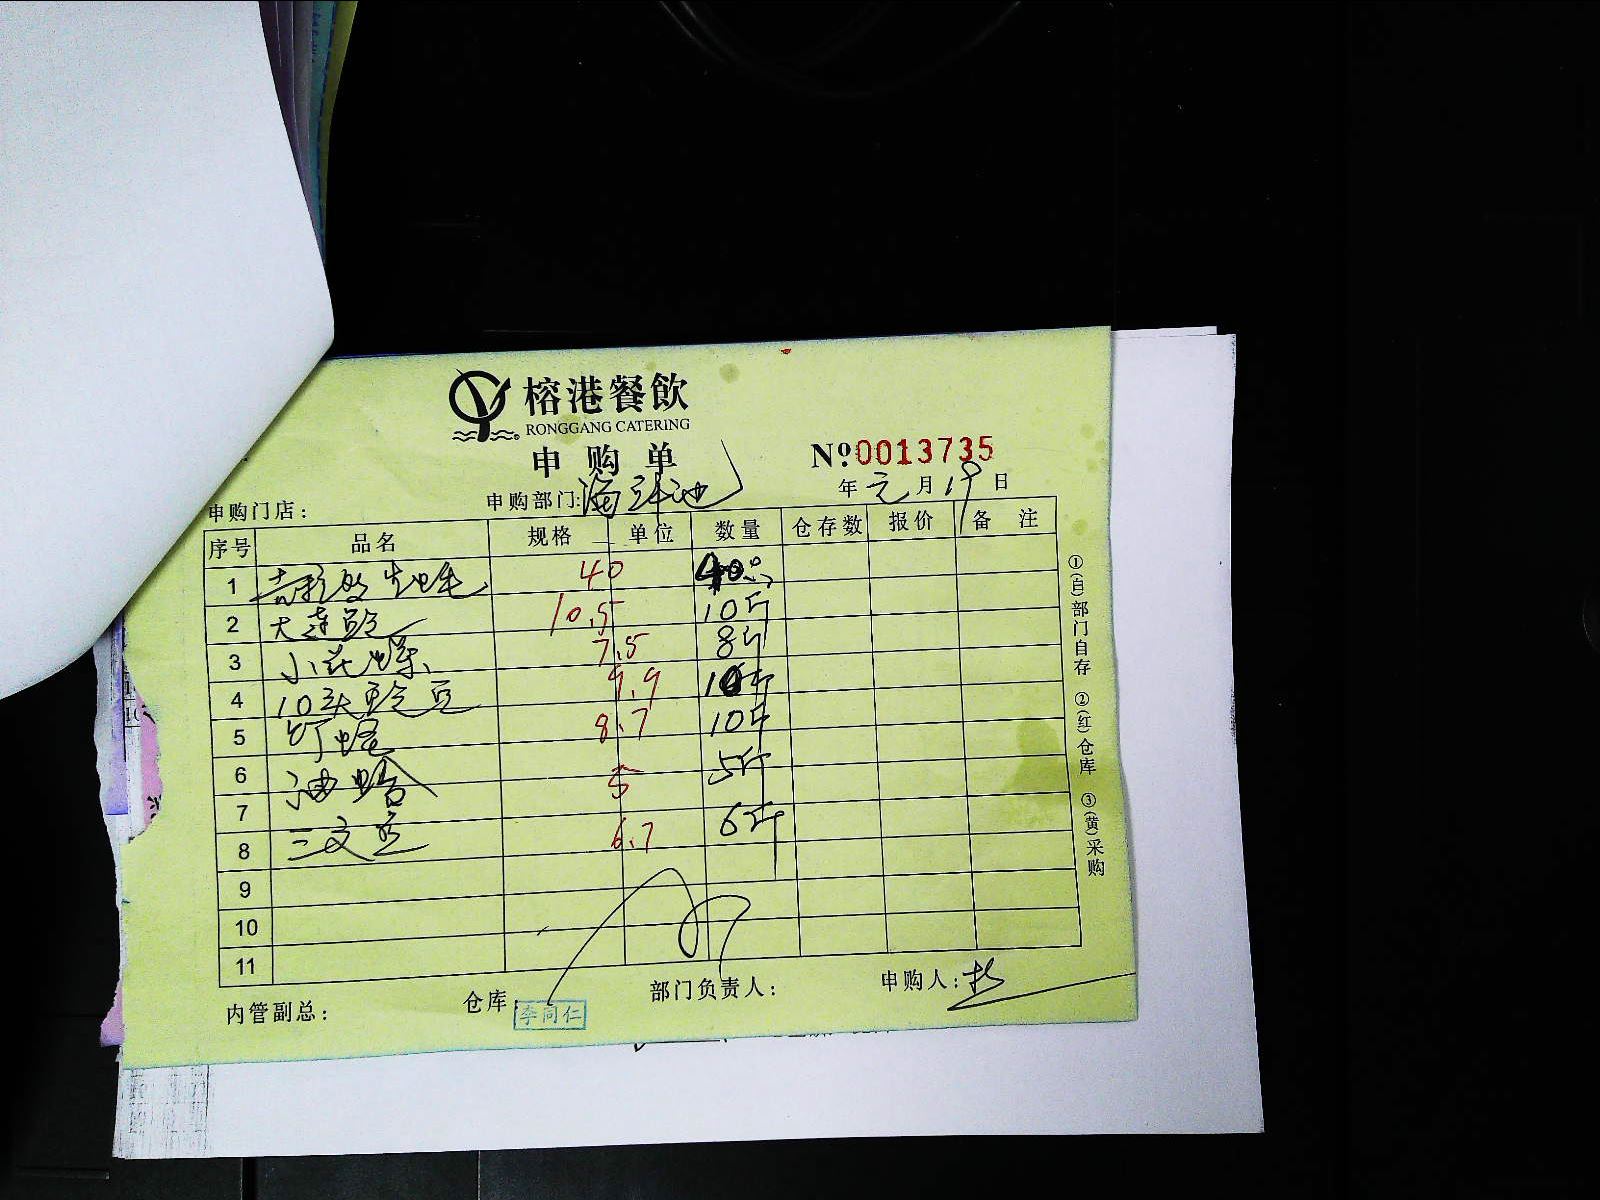 榕港餐飲
RONGGANG CATERING
申购单
Nº 0013735
申购门店： 申购部门：海鲜池 年 元 月 19 日
序号 品名 规格 单位 数量 仓存数 报价 备注
1 生蚝 40
2 大连鲍 10.5 10斤
3 小花螺 7.5 8斤
4 10头鲍 9.9 10斤
5 8.7 10斤
6 油蛤 5 5斤
7
8 三文 6.7 6斤
9
10
11
内管副总： 仓库： 部门负责人： 申购人：
李同仁
①(白)部门自存 ②(红)仓库 ③(黄)采购